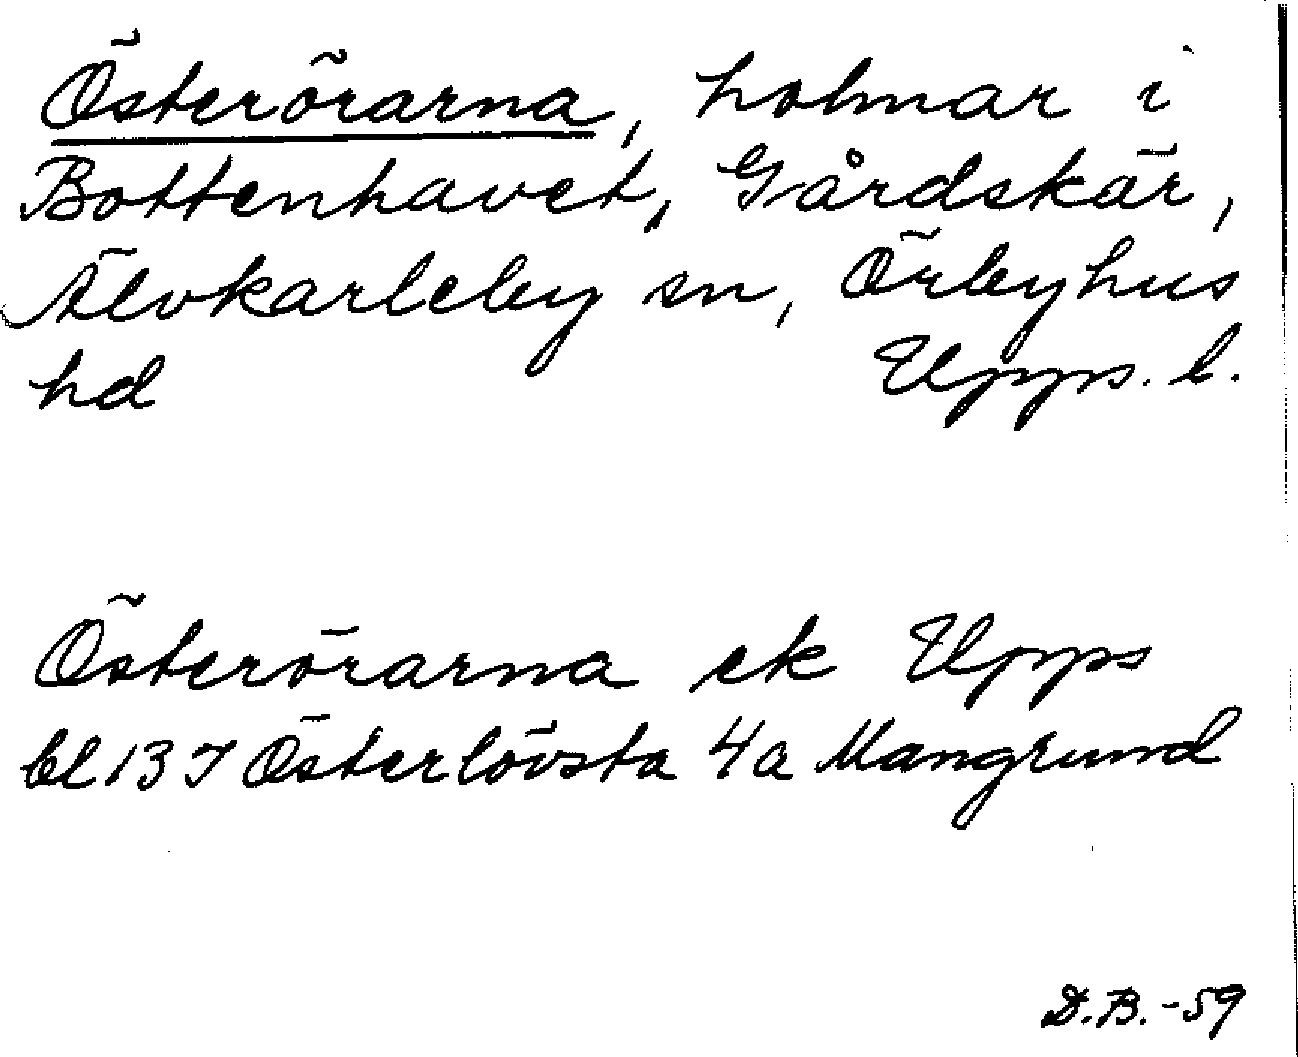 Österörarna, holmar i
Bottenhavet, Gårdskär,
Älvkarleby sn, Örbyhus
hd Upps. l.
Österörarna ek Upps
bl 13 I Österlövsta 4a Mangrund
D.B. -59